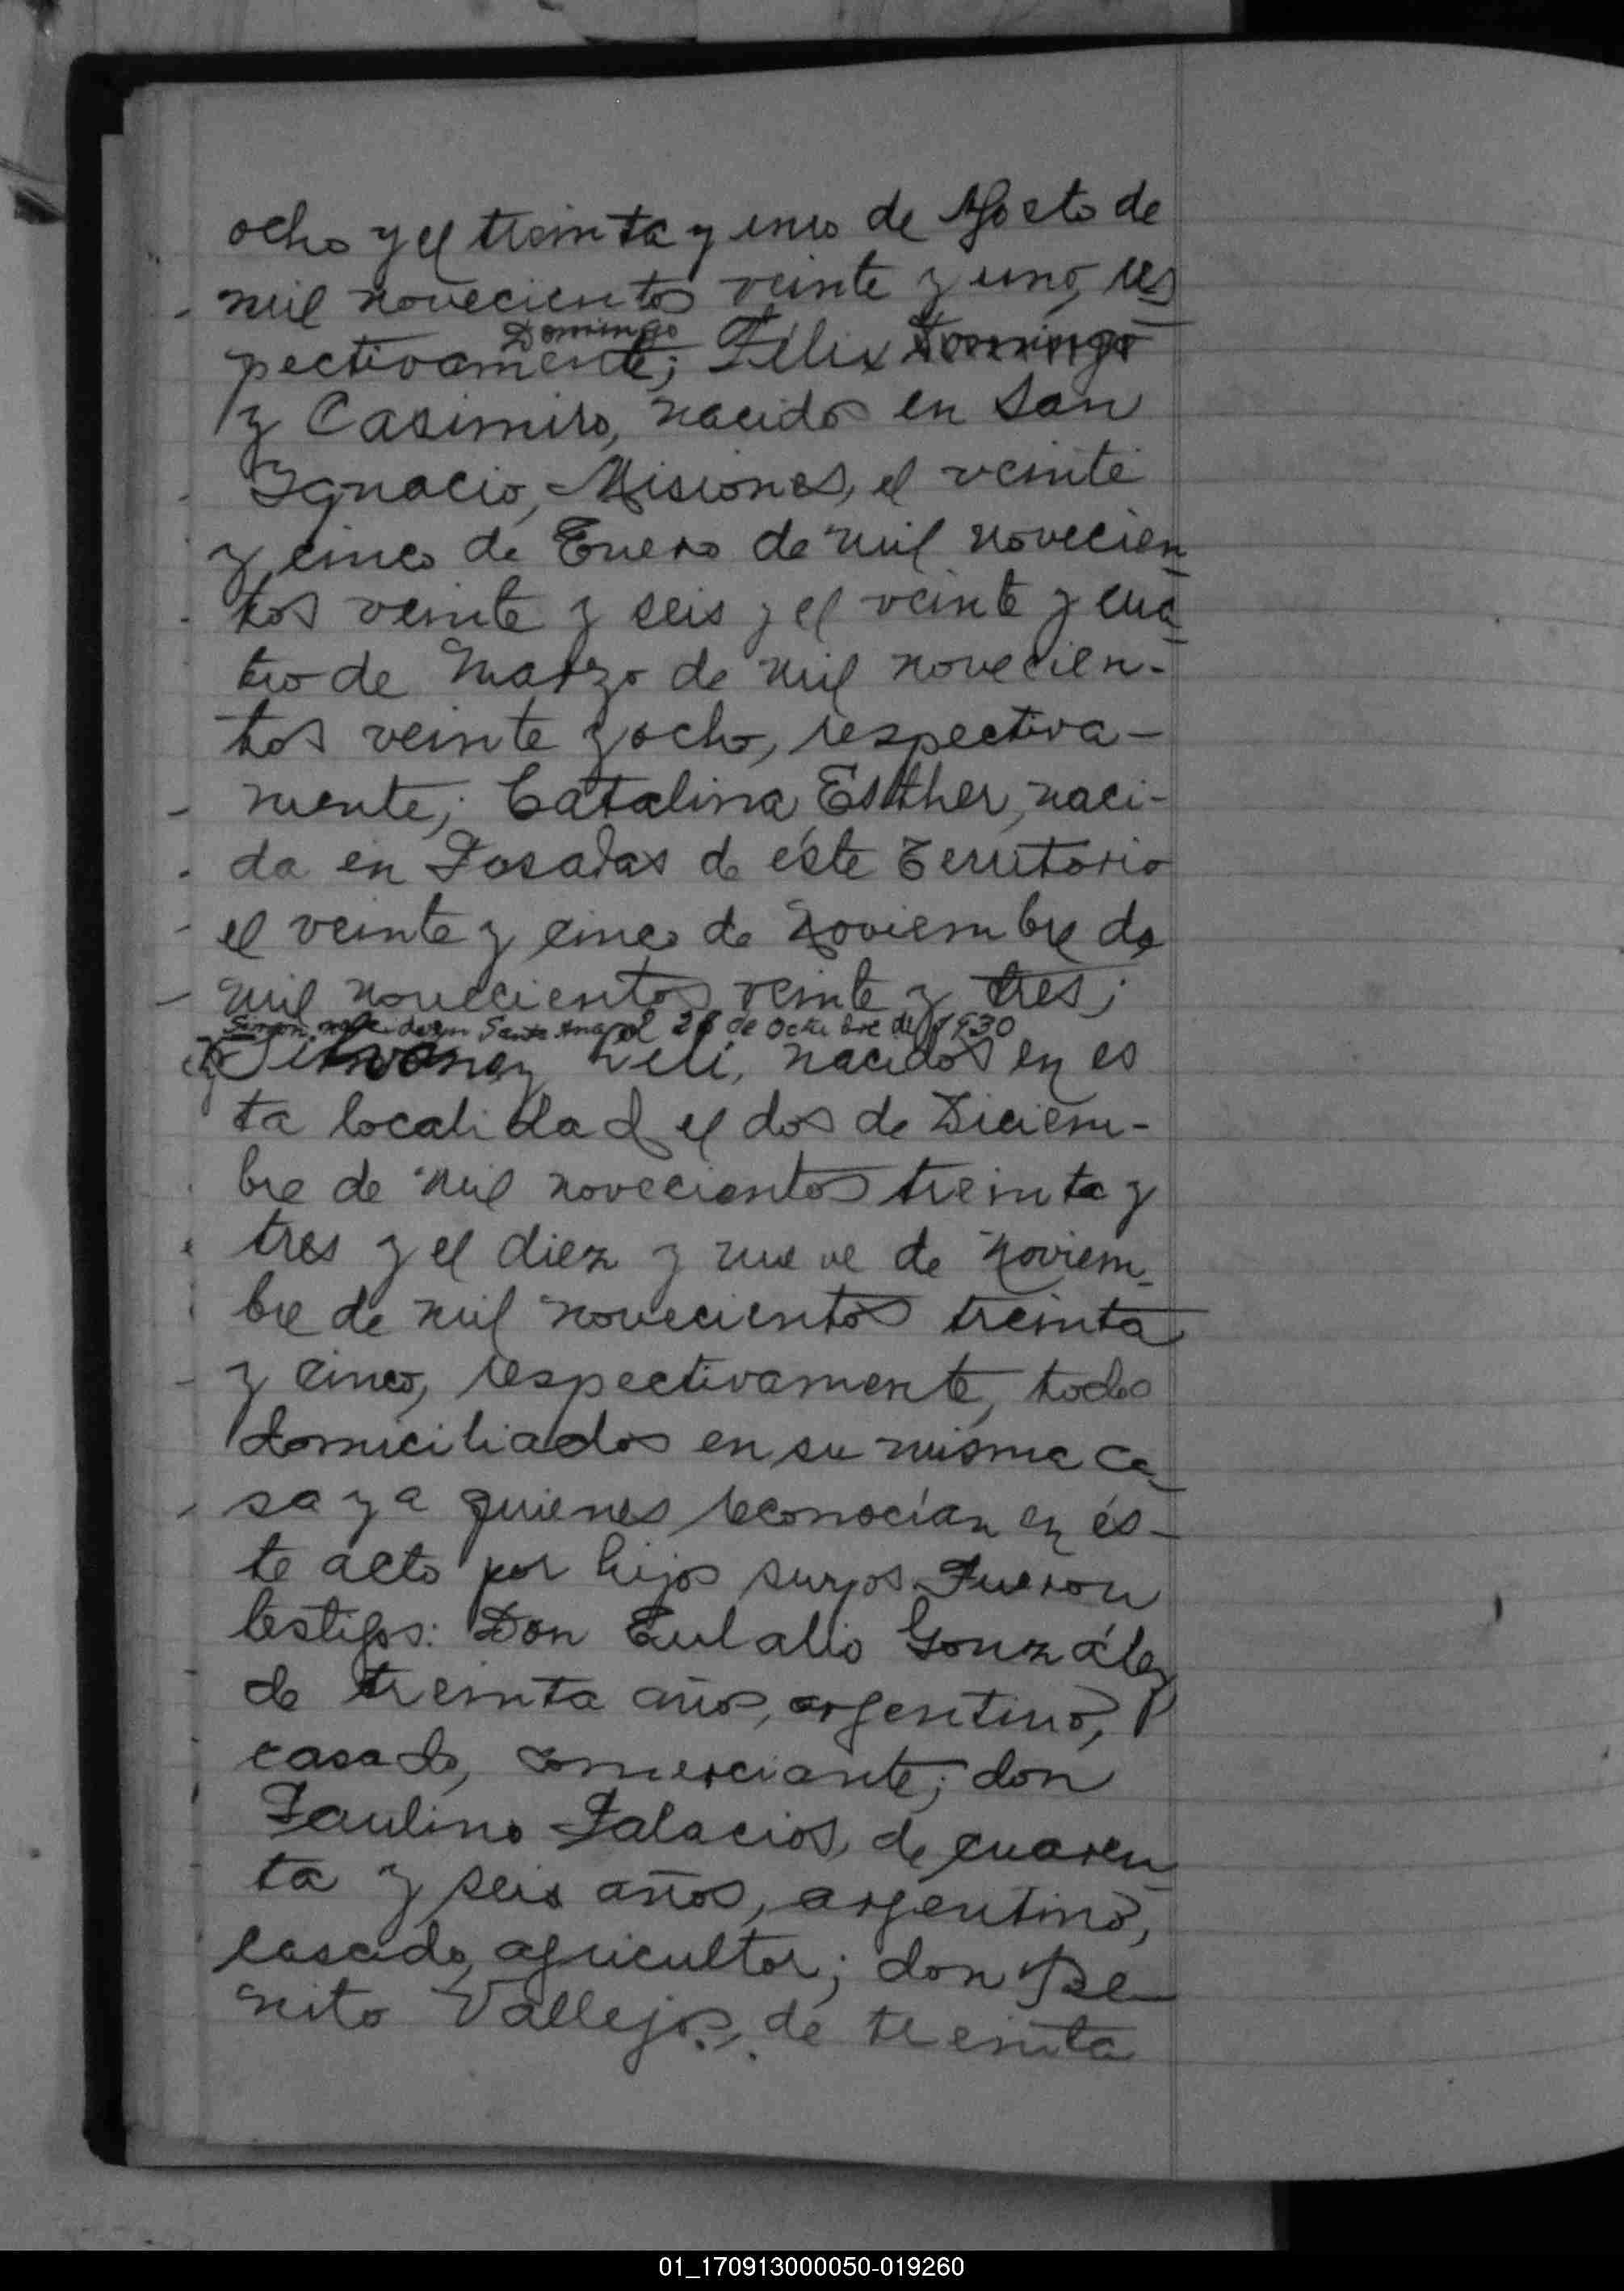 ocho y el treinta y uno de Agosto de
mil novecientos veinte y uno, res
Domingo
pectivamente; Félix Domingo
y Casimiro, nacidos en San
Ignacio, Misiones, el veinte
y cinco de Enero de mil novecien
tos veinte y seis y el veinte y cua
tro de Marzo de mil novecien-
tos veinte y ocho, respectiva-
mente; Catalina Esther, naci-
da en Posadas de éste Territorio
el veinte y cinco de Noviembre de
mil novecientos veinte y tres;
Simon nacido en Santa Ana el 28 de Octubre de 1930
y Leli, nacidos en es
ta localidad el dos de Diciem-
bre de mil novecientos treinta y
tres y el diez y nueve de Noviem-
bre de mil novecientos treinta
y cinco, respectivamente, todos
domiciliados en su misma ca-
sa y a quienes reconocían en és-
te acto por hijos suyos. Fueron
testigos: Don Eulalio González
de treinta años, argentino,
casado, comerciante; don
Paulino Palacios, de cuaren
ta y seis años, argentino,
casado, agricultor; don Be-
nito Vallejos, de treinta
01_170913000050-019260